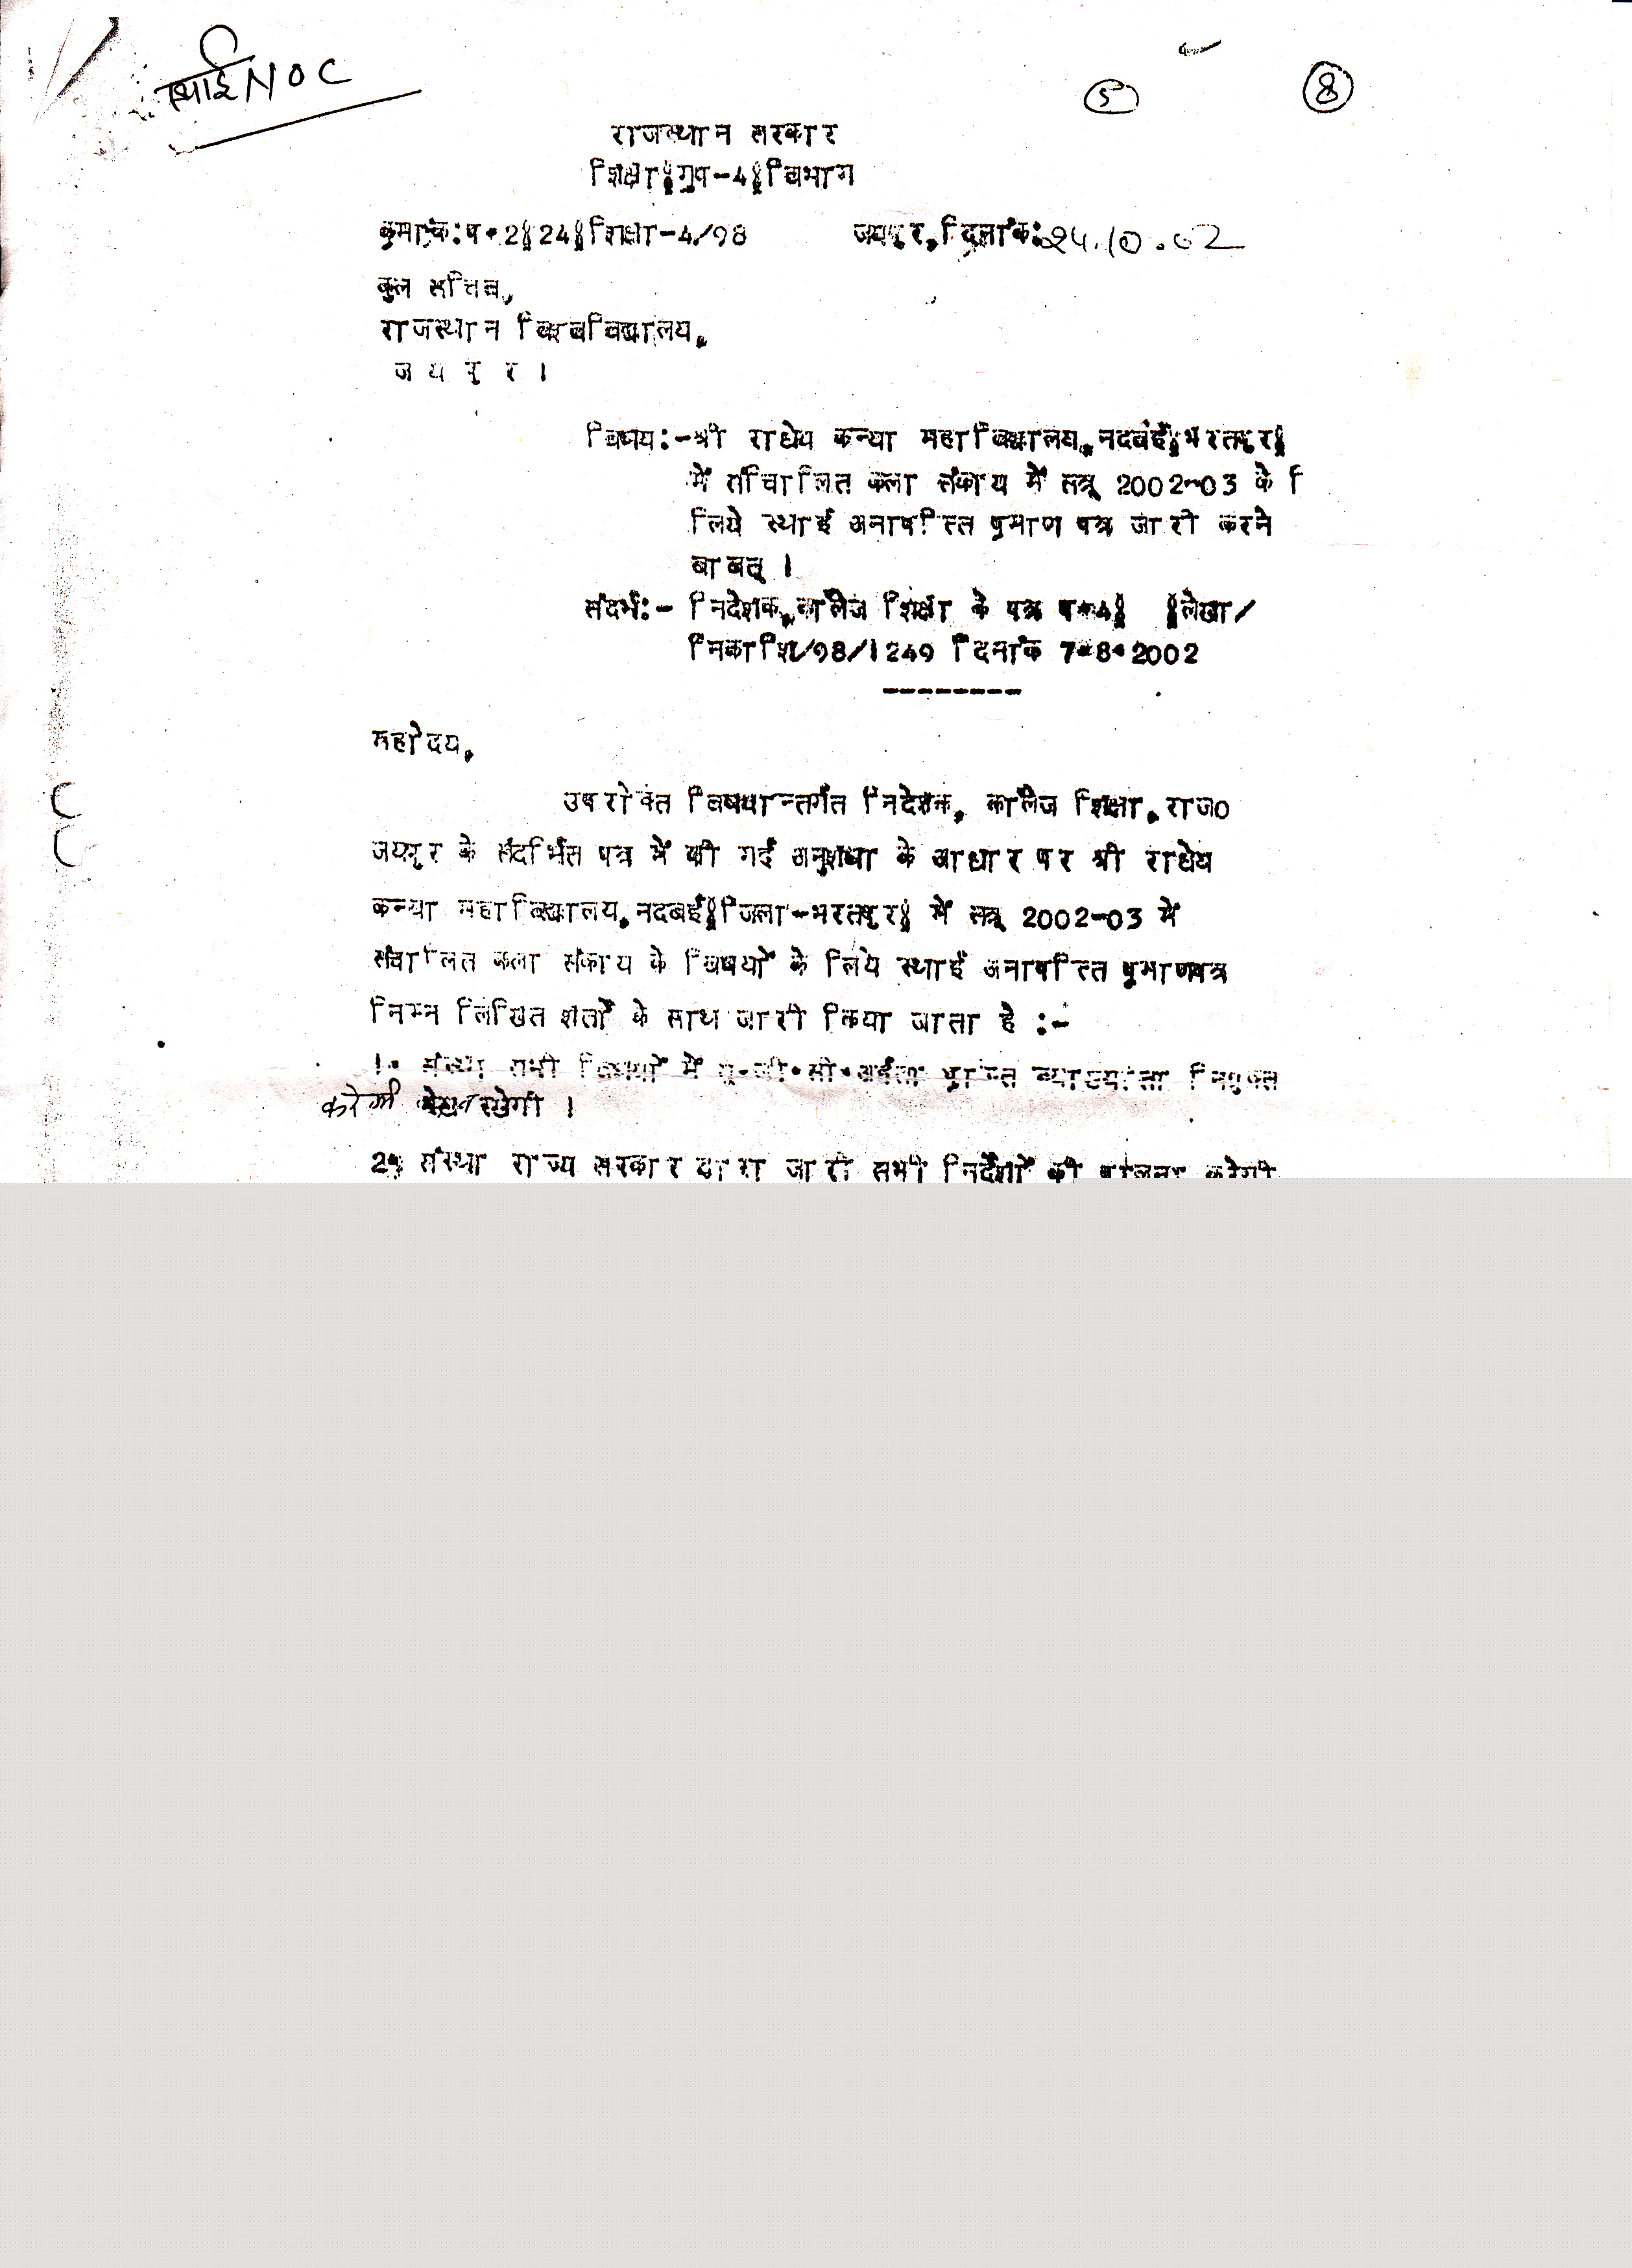 स्थाई NOC
5 8
राजस्थान सरकार
शिक्षा(ग्रुप-4)विभाग
क्रमांक:प.2(24)शिक्षा-4/98 जयपुर, दिनांक: 24.10.02
कुल सचिव,
राजस्थान विश्वविद्यालय,
ज य पु र ।
विषय:-श्री राधेय कन्या महाविद्यालय, नदबई(भरतपुर)
में संचालित कला संकाय में सत्र 2002-03 के ि
लिये स्थाई अनापत्ति प्रमाण पत्र जारी करने
बाबत् ।
संदर्भ:- निदेशक, कॉलेज शिक्षा के पत्र प.4( )लेखा/
निकाशि/98/1249 दिनांक 7.8.2002
--------
महोदय,
उपरोक्त विषयान्तर्गत निदेशक, कॉलेज शिक्षा, राज0
जयपुर के संदर्भित पत्र में की गई अनुशंषा के आधार पर श्री राधेय
कन्या महाविद्यालय, नदबई(जिला-भरतपुर) में सत्र 2002-03 में
संचालित कला संकाय के विषयों के लिये स्थाई अनापत्ति प्रमाणपत्र
निम्न लिखित शर्तों के साथ जारी किया जाता है :-
1. संस्था सभी विषयों में यू.जी.सी.अर्हता प्राप्त व्याख्याता नियुक्त
करेगी रखेगी ।
2. संस्था राज्य सरकार द्वारा जारी सभी निर्देशों की पालना करेगी